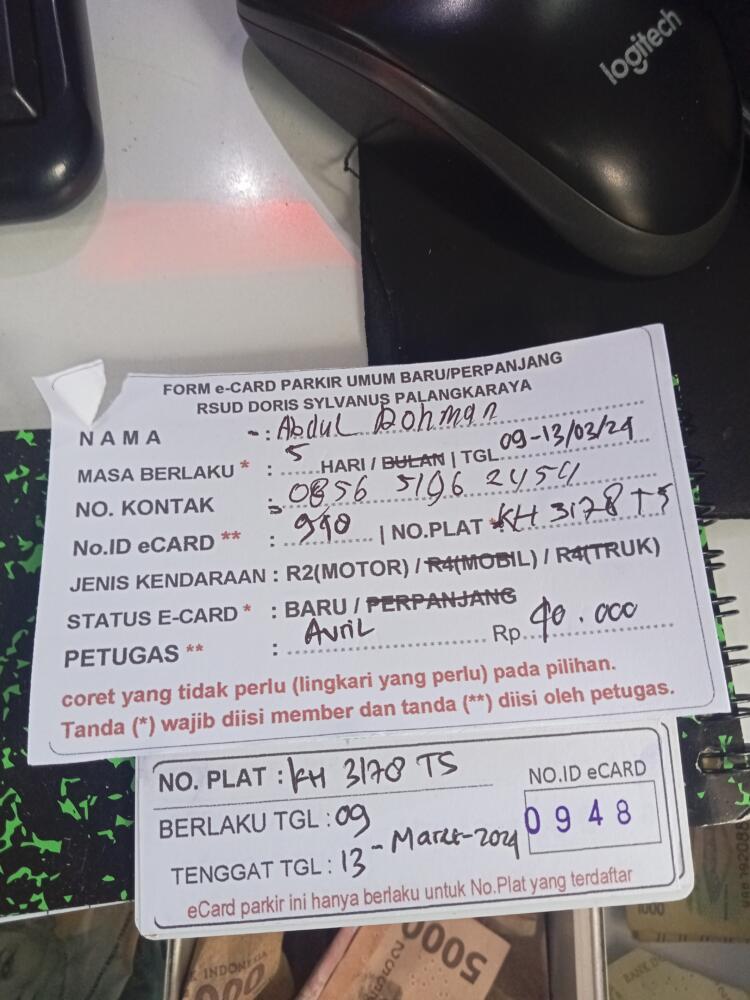 logitech
FORM e-CARD PARKIR UMUM BARU/PERPANJANG
RSUD DORIS SYLVANUS PALANGKARAYA
NAMA : Abdul Rohman
MASA BERLAKU * : 5 HARI / BULAN | TGL 09-13/03/24
NO. KONTAK : 0856 5196 2454
No.ID eCARD ** : 948 | NO.PLAT KH 3178 TS
JENIS KENDARAAN : R2(MOTOR) / R4(MOBIL) / R4(TRUK)
STATUS E-CARD * : BARU / PERPANJANG
PETUGAS ** : Avril Rp. 40.000
coret yang tidak perlu (lingkari yang perlu) pada pilihan.
Tanda (*) wajib diisi member dan tanda (**) diisi oleh petugas.
NO. PLAT : KH 3178 TS
NO.ID eCARD
BERLAKU TGL : 09
0948
TENGGAT TGL : 13 - Maret-2024
eCard parkir ini hanya berlaku untuk No.Plat yang terdaftar
INDONESIA
5000
1000